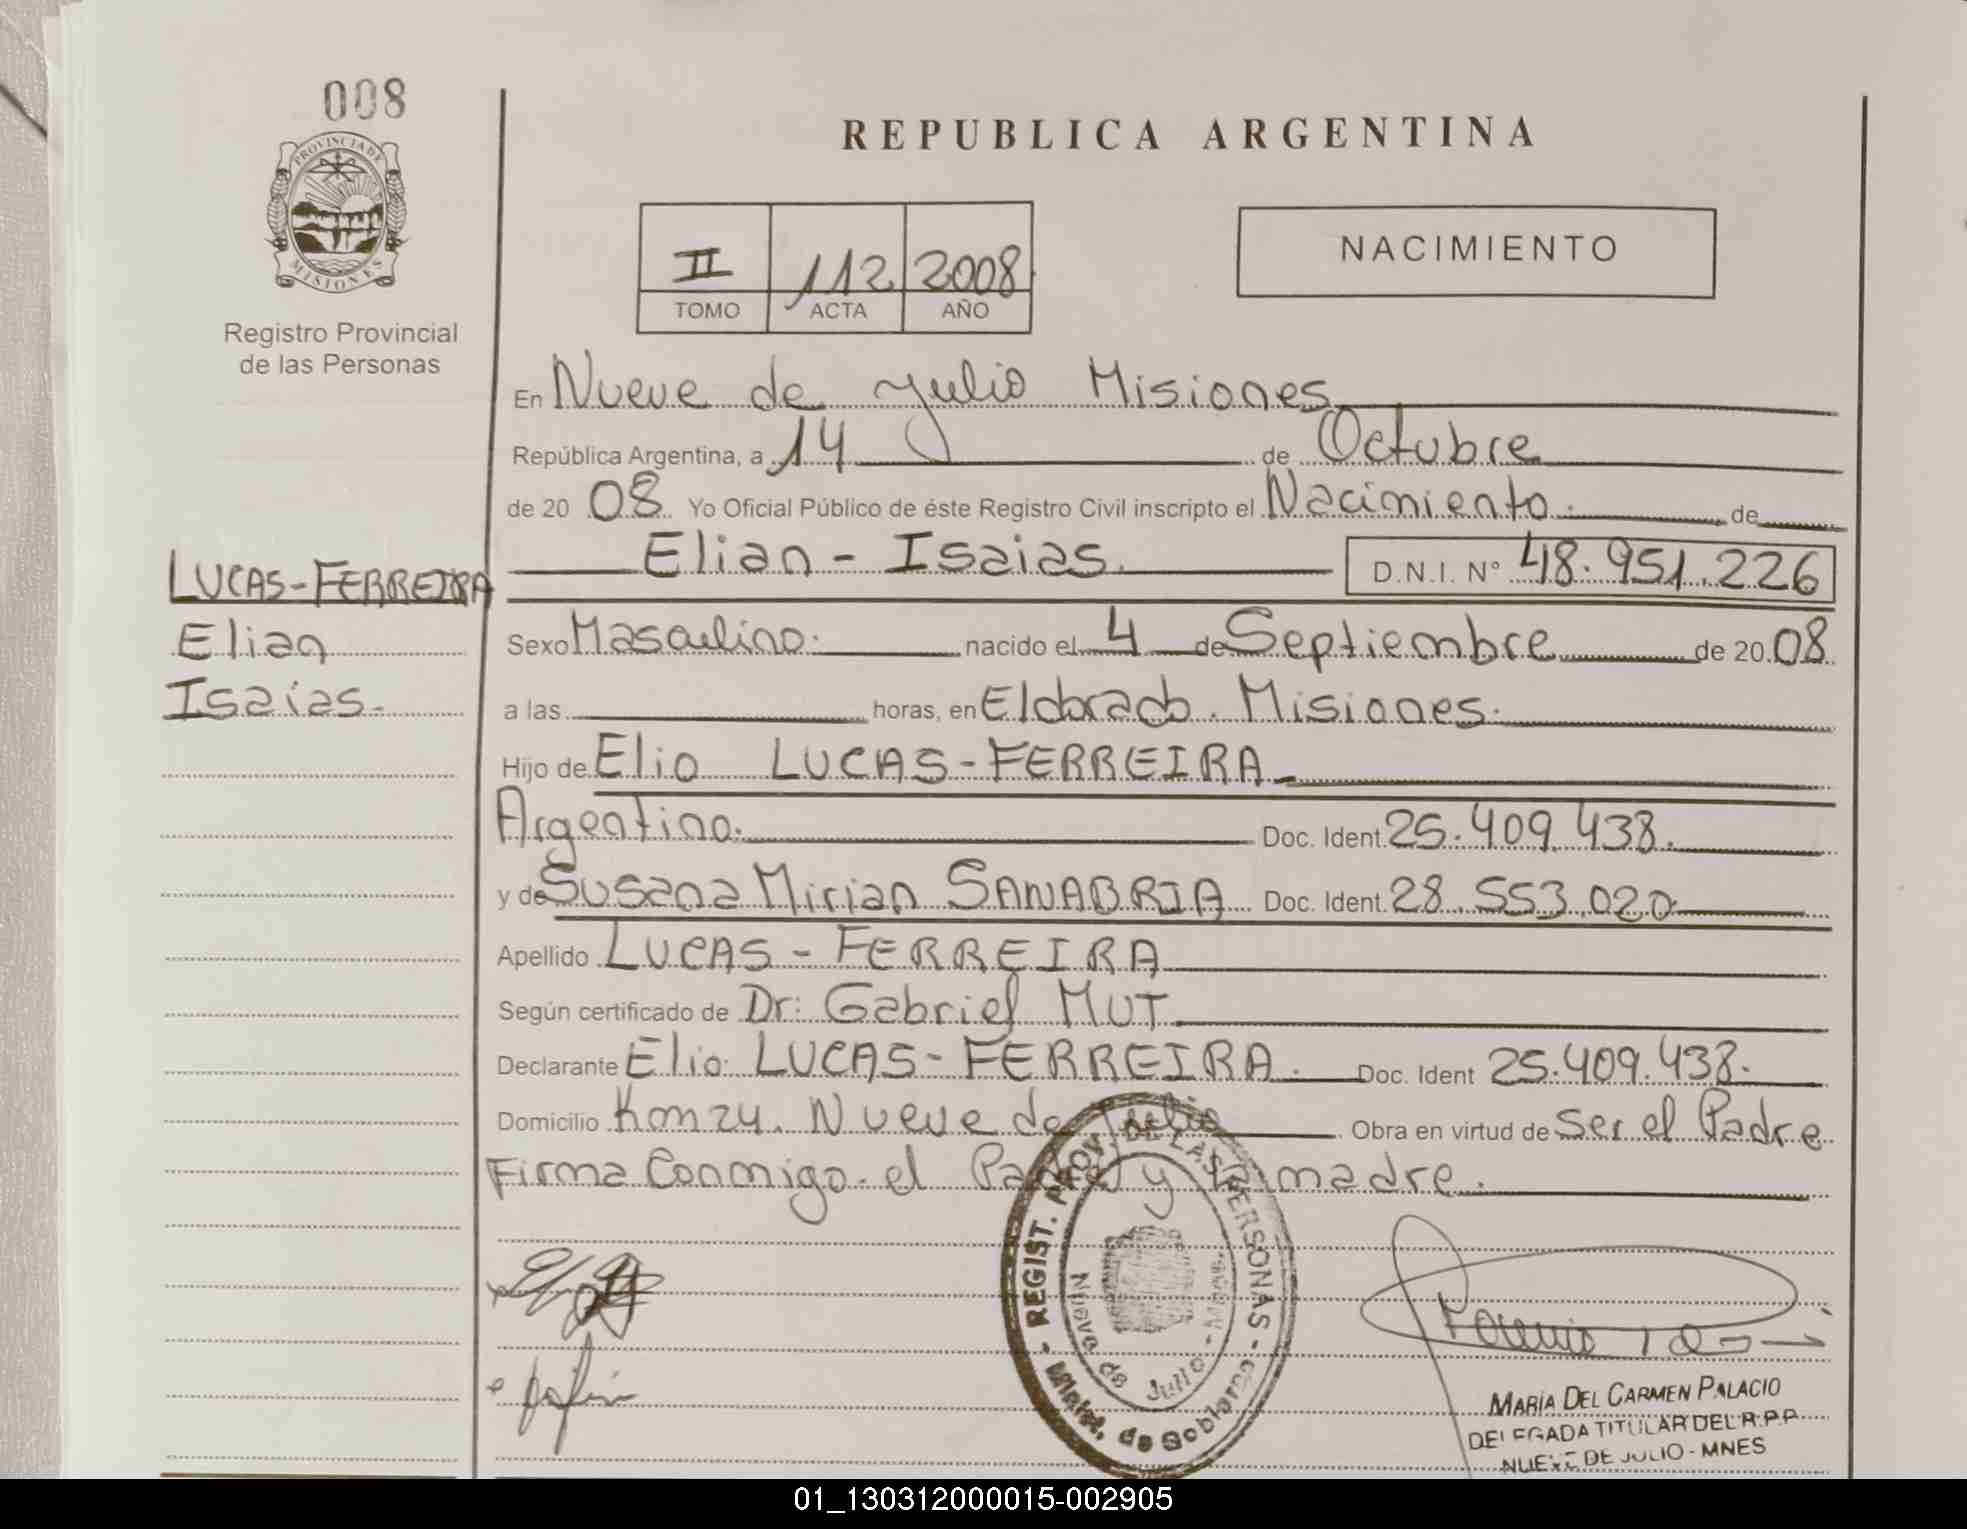 008
PROVINCIA DE
MISIONES
Registro Provincial
de las Personas
REPUBLICA ARGENTINA
II 112 2008
TOMO ACTA AÑO
NACIMIENTO
En Nueve de Julio Misiones
República Argentina, a 14 de Octubre
de 20 08 Yo Oficial Público de éste Registro Civil inscripto el Nacimiento. de
Elian - Isaias. D.N.I. N° 48.951.226
LUCAS-FERREIRA
Elian
Isaías.
Sexo Masculino. nacido el 4 de Septiembre de 20 08
a las horas, en Eldorado. Misiones.
Hijo de Elio LUCAS-FERREIRA
Argentino. Doc. Ident. 25.409.438.
y de Susana Mirian SANABRIA Doc. Ident. 28.553.020
Apellido LUCAS - FERREIRA
Según certificado de Dr: Gabriel MUT
Declarante Elio LUCAS-FERREIRA. Doc. Ident 25.409.438.
Domicilio Konzu. Nueve de Julio Obra en virtud de ser el Padre
Firma Conmigo el Padre y la madre.
- REGIST. PROV. DE LAS PERSONAS -
Minist. de Gobierno
Nueve de Julio - Mnes.
MARÍA DEL CARMEN PALACIO
DELEGADA TITULAR DEL R.P.P.
NUEVE DE JULIO - MNES
01_130312000015-002905